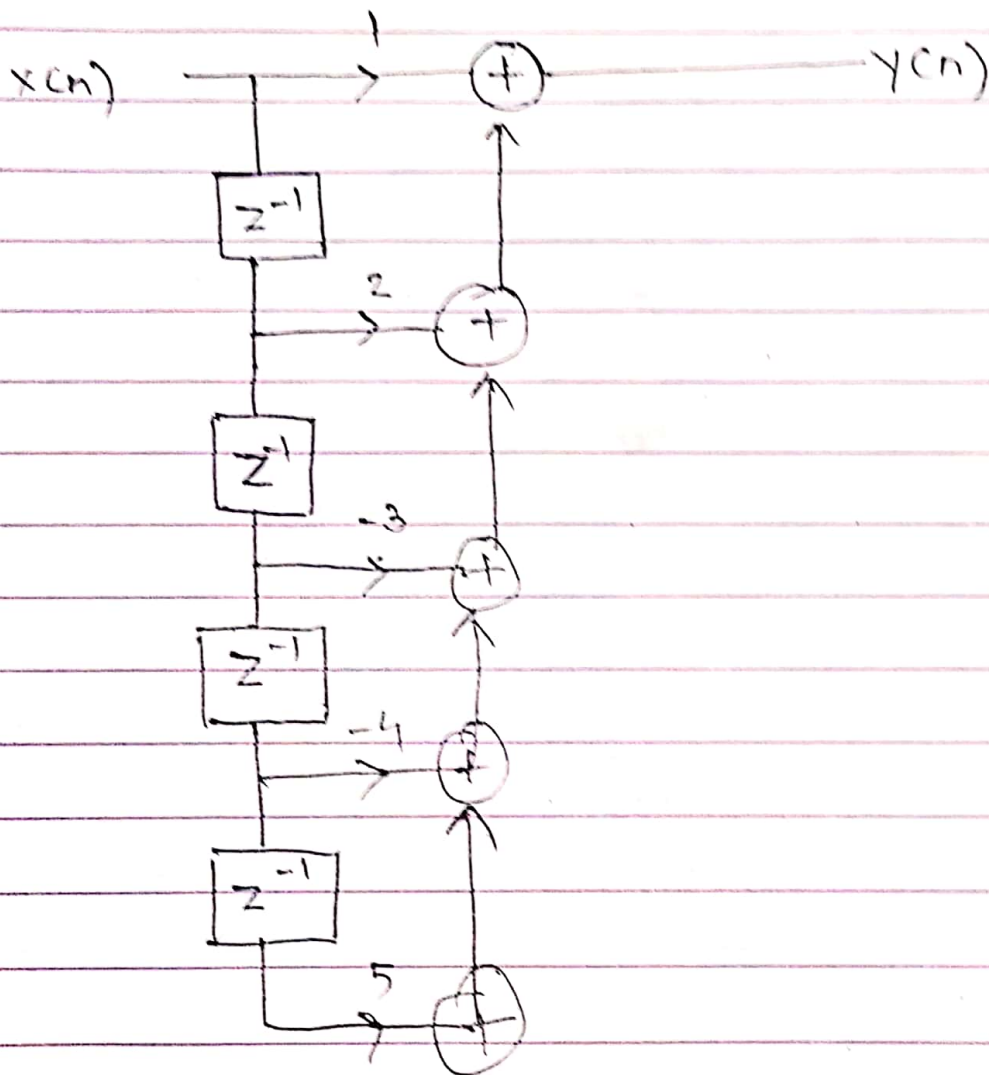 1
x(n) + y(n)
z⁻¹
2
+
z⁻¹
-3
+
z⁻¹
-4
+
z⁻¹
5
+